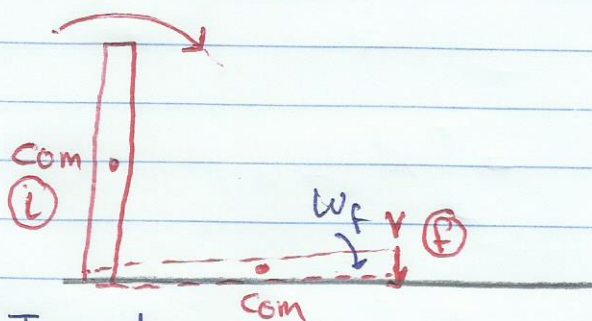 com
i
ω_f
v
f
com